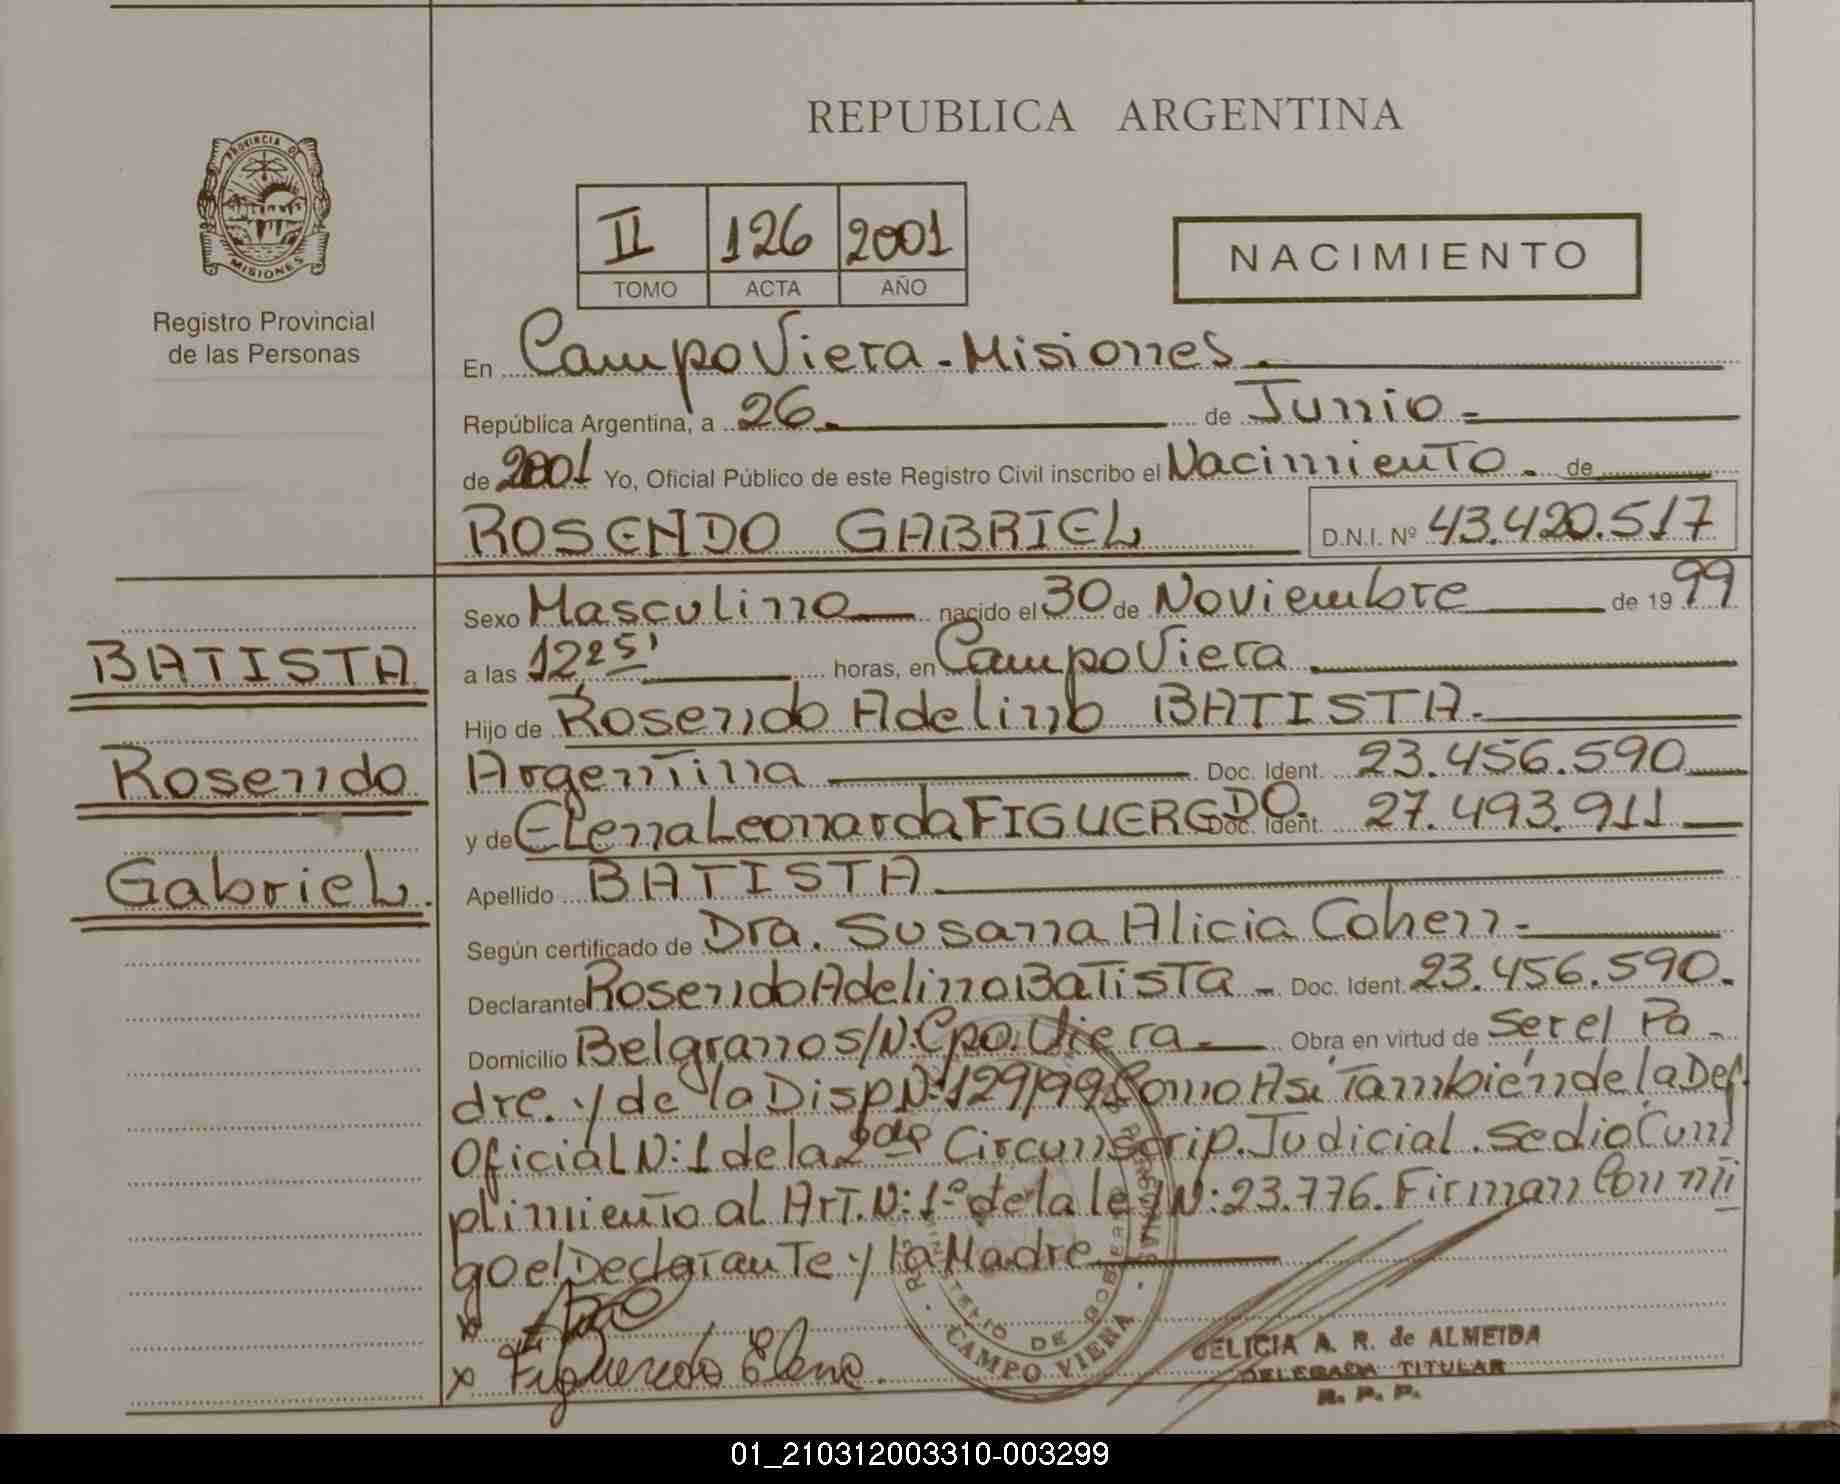 REPUBLICA ARGENTINA
PROVINCIA DE
MISIONES
Registro Provincial
de las Personas
II 126 2001
TOMO ACTA AÑO
NACIMIENTO
En Campo Viera - Misiones.
República Argentina, a 26. de Junio -
de 2001 Yo, Oficial Público de este Registro Civil inscribo el Nacimiento. de
ROSENDO GABRIEL D.N.I. Nº 43.420.517
BATISTA
Rosendo
Gabriel.
Sexo Masculino nacido el 30 de Noviembre de 1999
a las 12,25' horas, en Campo Viera
Hijo de Rosendo Adelino BATISTA.
Argentina Doc. Ident. 23.456.590
y de Elena Leonarda FIGUEREDO. Doc. Ident. 27.493.911
Apellido BATISTA
Según certificado de Dra. Susana Alicia Cohen -
Declarante Rosendo Adelino Batista - Doc. Ident. 23.456.590.
Domicilio Belgrano s/N. Cpo. Viera. Obra en virtud de ser el Pa-
dre. y de la Disp N: 129/99 Como Asi También de la Def.
Oficial N: 1 de la 2da Circunscrip. Judicial. se dio Cum
plimiento al Art. N: 1º de la ley N: 23.776. Firman Con mi
go el Declarante y la Madre
x
x Figueredo Elena.
MINISTERIO DE GOBIERNO
CAMPO VIERA - MISIONES
DELICIA A. R. de ALMEIDA
DELEGADA TITULAR
R. P. P.
01_210312003310-003299